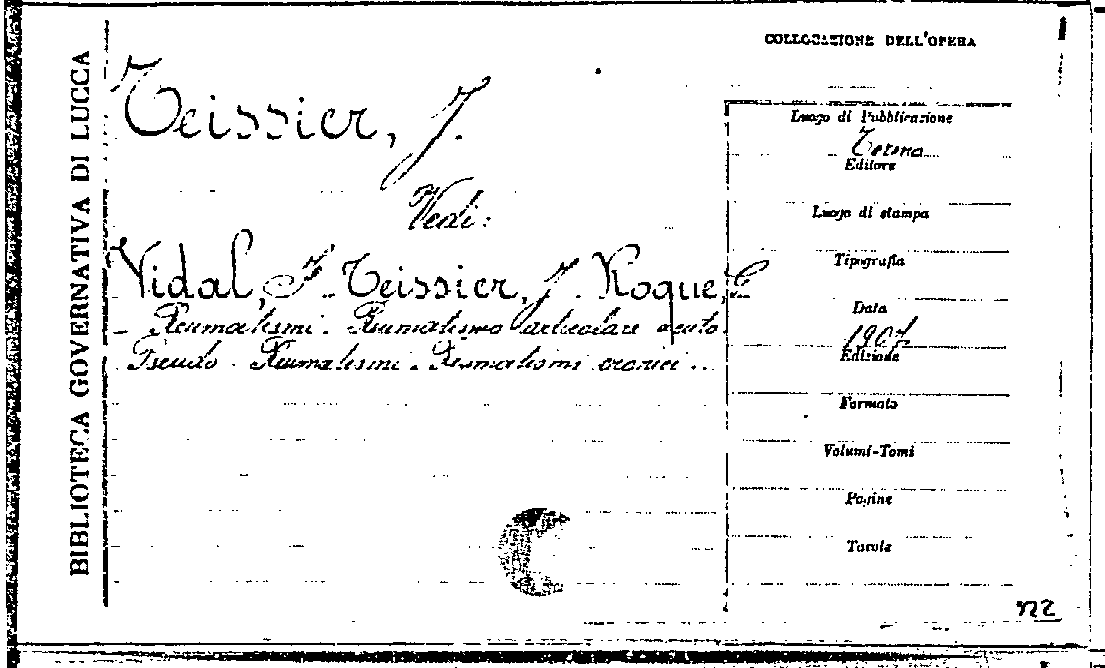 BIBLIOTECA GOVERNATIVA DI LUCCA
COLLOCAZIONE DELL'OPERA
Teissier, J.
Vedi:
Vidal, F. Teissier, J. Roque, G
- Reumatismi. Reumatismo articolare acuto.
Pseudo-Reumatismi. Reumatismi cronici...
Luogo di Pubblicazione
Torino
Editore
Luogo di stampa
Tipografia
Data
1907
Edizione
Formato
Volumi-Tomi
Pagine
Tavole